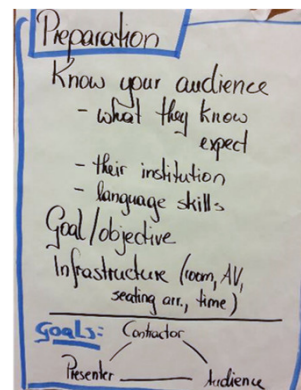 Preparation
Know your audience
- what they know
expect
- their institution
- language skills
Goal/objective
Infrastructure (room, AV,
seating arr., time)
Goals: Contractor
Presenter Audience